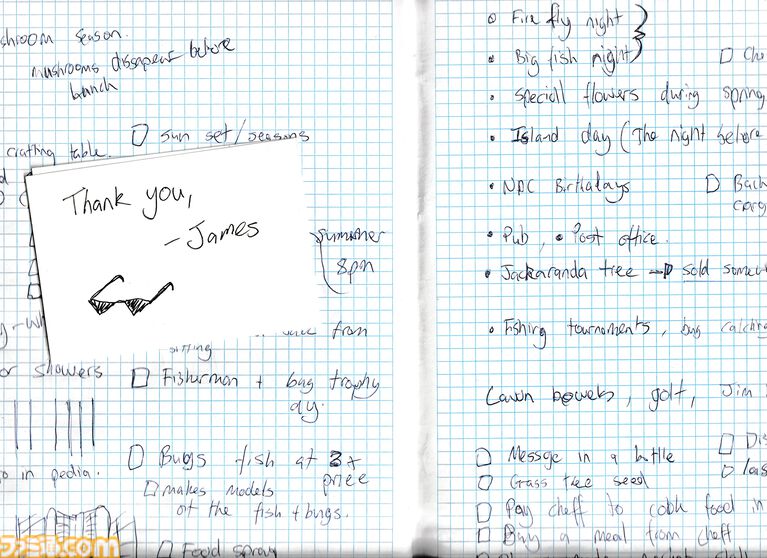 shroom season.
mushrooms dissapear before
crafting table.
sun set/seasons
Thank you,
- James
summer
8pm
from
sitting
or showers
Fisherman + bug trophy
day.
Bugs fish at 3+
price
o in pedia.
makes models
of the fish + bugs.
Food spray
ファミ通.com
• Fire fly night
• Big fish night
• Speciall flowers during spring
• Island day (The night before
• NPC Birthdays
• Pub, • Post office.
• Jackaranda tree → sold somew
• Fishing tournaments, bug catching
Lawn bowels, golf, Jim
Message in a bottle
Grass tree seed
Pay cheff to cook food in
Buy a meal from cheff
Cho
Back
carg
Dis